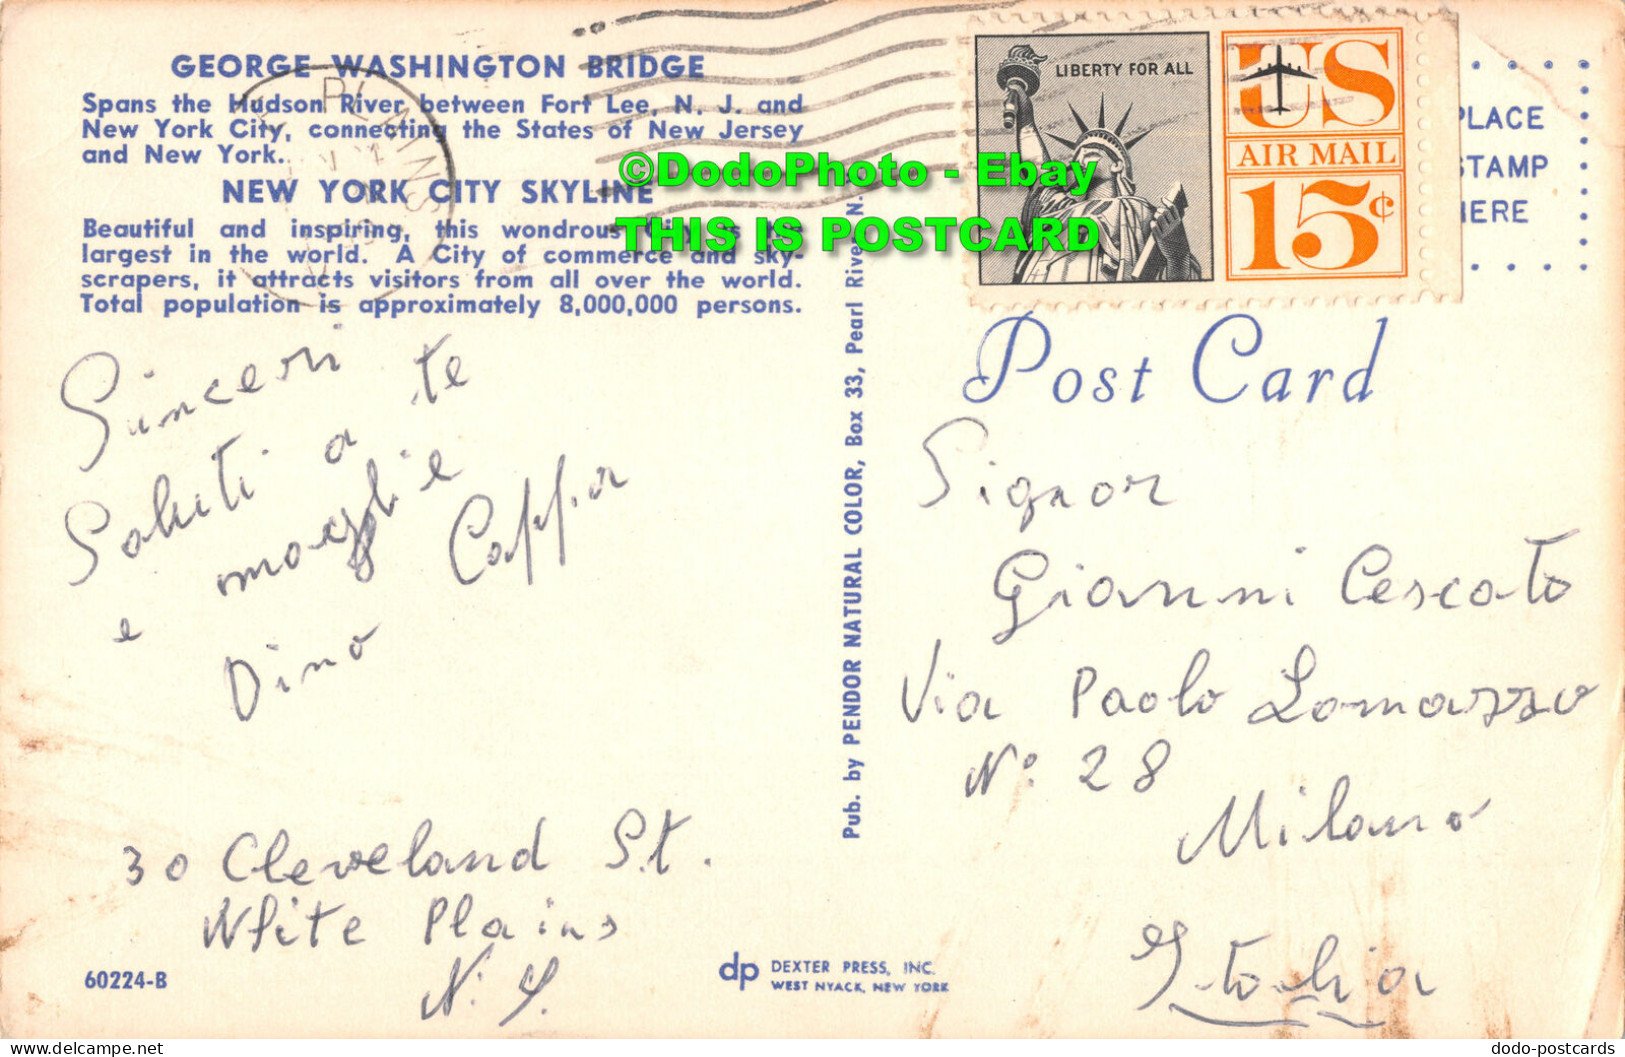 GEORGE WASHINGTON BRIDGE
Spans the Hudson River between Fort Lee, N. J. and
New York City, connecting the States of New Jersey
and New York.
NEW YORK CITY SKYLINE
Beautiful and inspiring, this wondrous City is the
largest in the world. A City of commerce and sky-
scrapers, it attracts visitors from all over the world.
Total population is approximately 8,000,000 persons.
Sinceri
Saluti a te
e moglie
Dino Cappa
30 Cleveland St.
White Plains
N. Y.
60224-B
PLAINS
©DodoPhoto - Ebay
THIS IS POSTCARD
Pub. by PENDOR NATURAL COLOR, Box 33, Pearl River, N.
dp DEXTER PRESS, INC.
WEST NYACK, NEW YORK
LIBERTY FOR ALL
US
AIR MAIL
15¢
PLACE
STAMP
HERE
Post Card
Signor
Gianni Cescato
Via Paolo Lomazzo
N° 28
Milano
Italia
dodo-postcards